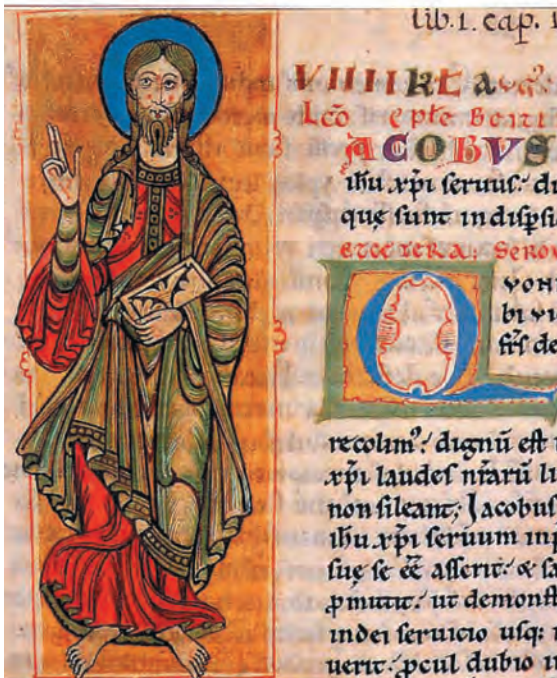 lib. 1. cap.
VIIII kƚ aug᷑.
Lcō eptē Beati
JACOBUS
ihu xp̄i seruus. di
quę sunt in dispsi
et cetera. Sermo
QVONI
bi vi
frī̄s de
recolim᷑. dignū est
xp̄i laudes nr̄arū li
non sileant; Jacobus
ihu xp̄i seruum in p
suę se ēē asserit. & sa
p̄mittit. ut demonst
in dei seruicio usq; i
uerit. p̄cul dubio